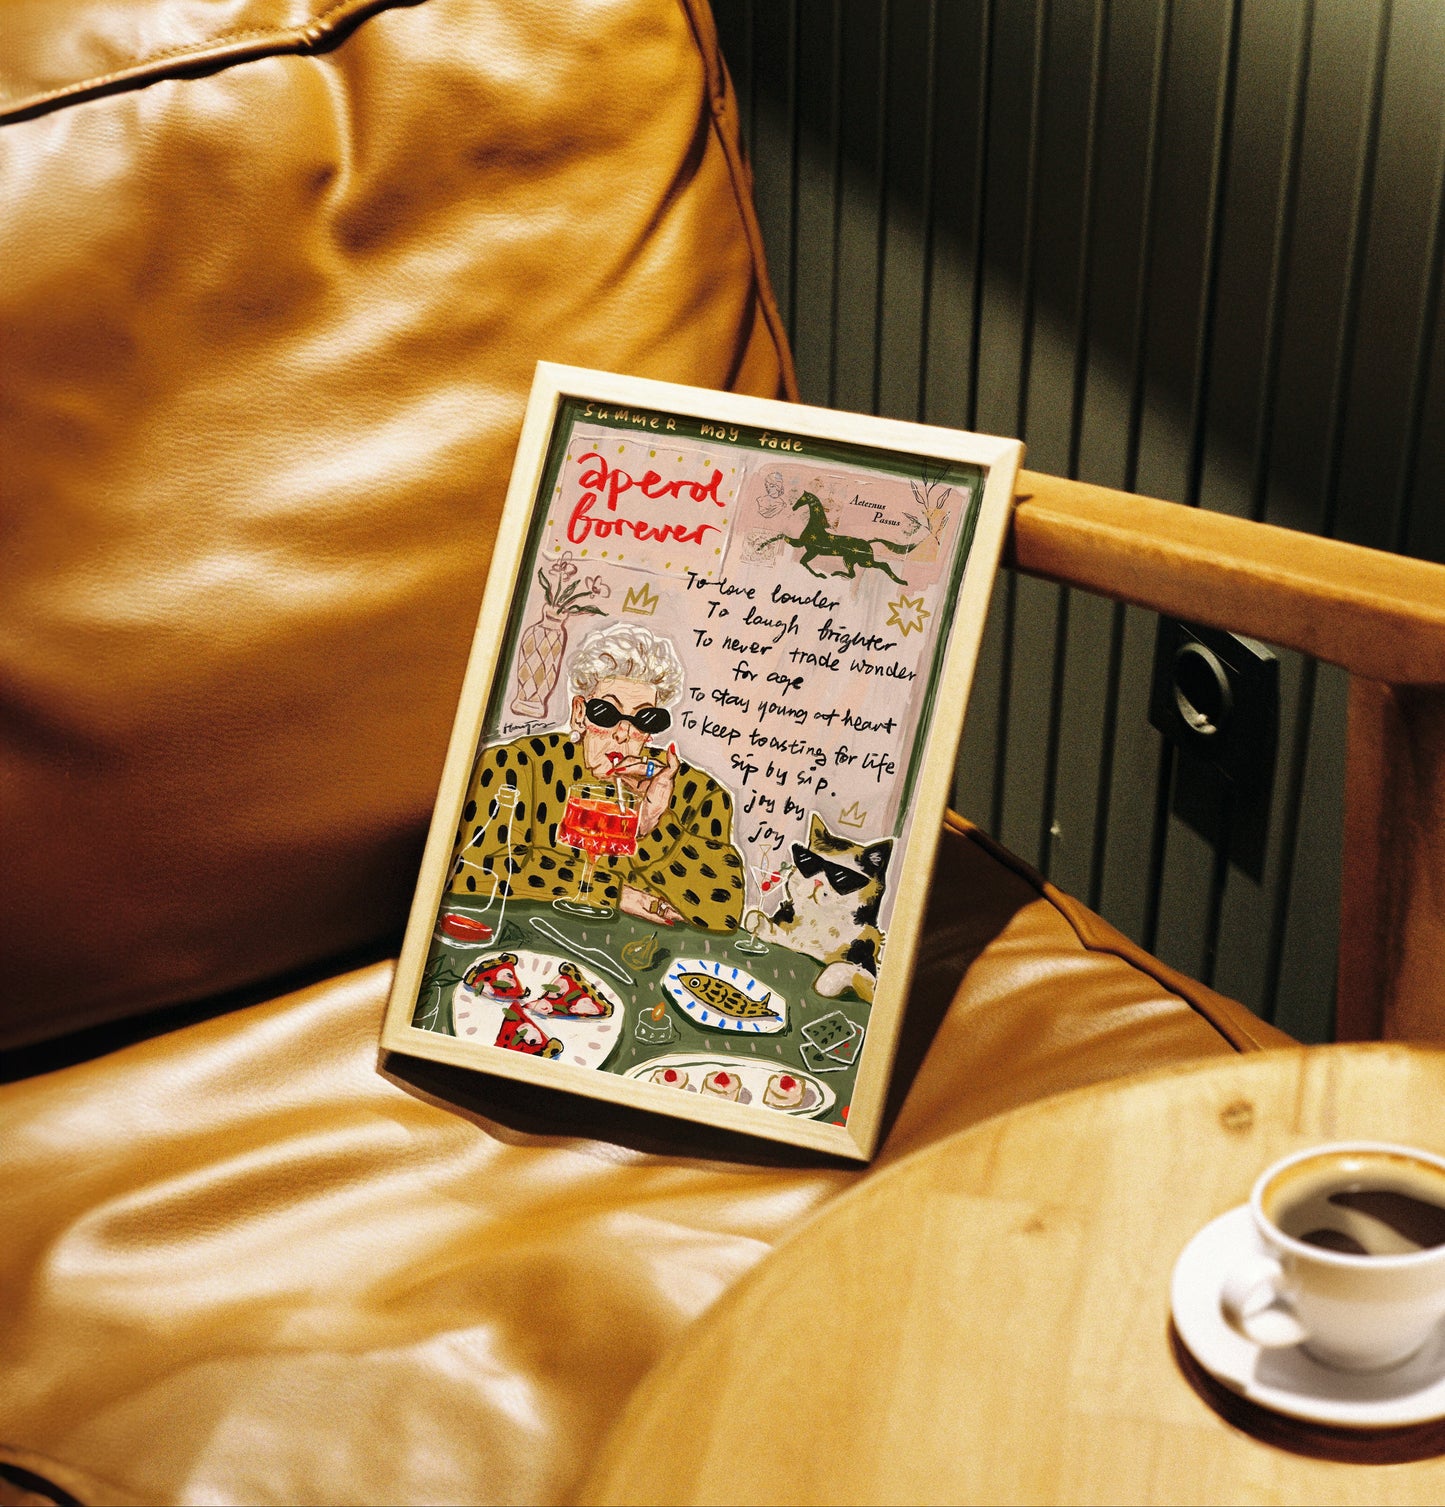 summer may fade
aperol
forever
Aeternus
Passus
To love louder
To laugh brighter
To never trade wonder
for age
To stay young at heart
To keep toasting for life
sip by sip.
joy by
joy